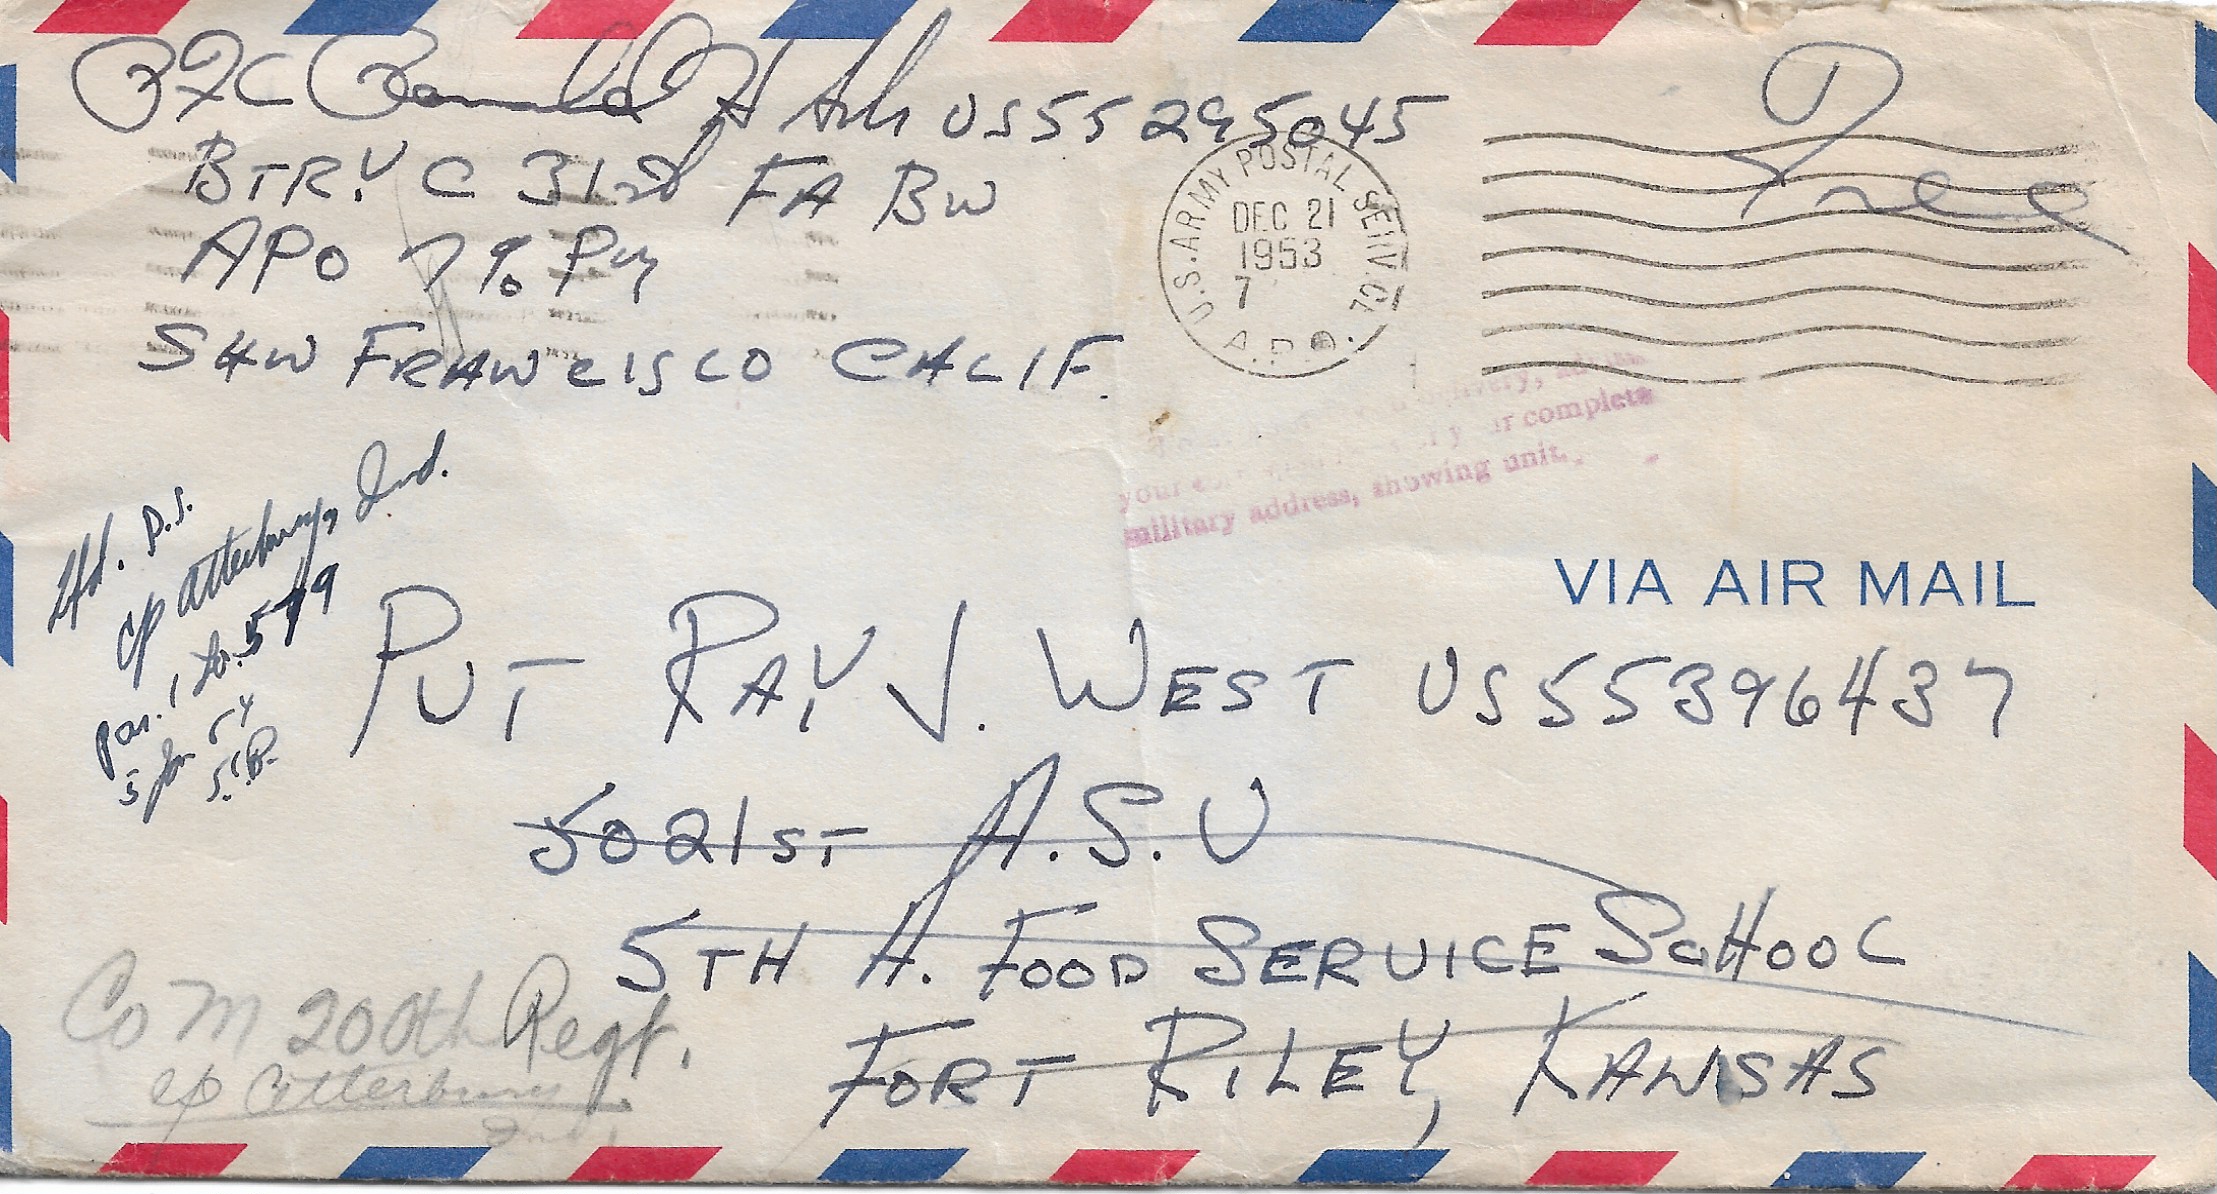 PFC Ronald H Ash US55295045
BTRY C 31st FA BN
APO 7 % PM
SAN FRANCISCO CALIF.
Free
U.S. ARMY POSTAL SERVICE
DEC 21
1953
7
A.P.O.
delivery,
your complete
your
military address, showing unit.
VIA AIR MAIL
D.S.
Cp Atterbury, Ind.
par. 1
5 Jan 54
PVT RAY J. WEST US55396437
5021ST A.S.U
5TH A. FOOD SERVICE SCHOOL
FORT RILEY, KANSAS
Co M 200th Regt.
Cp Atterbury
Ind.